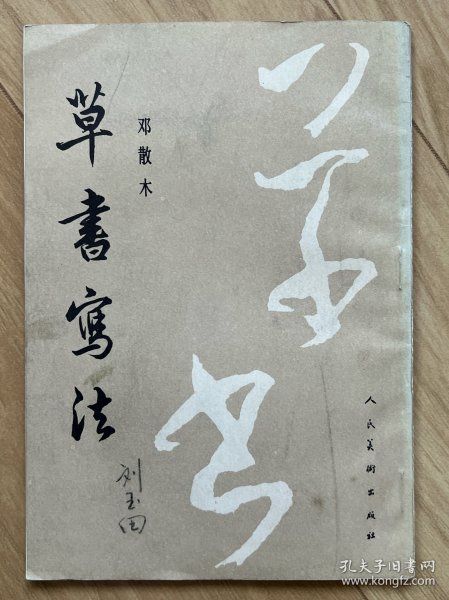 草書
草書寫法
邓散木
刘玉田
人民美術出版社
孔夫子旧书网
www.kongfz.com